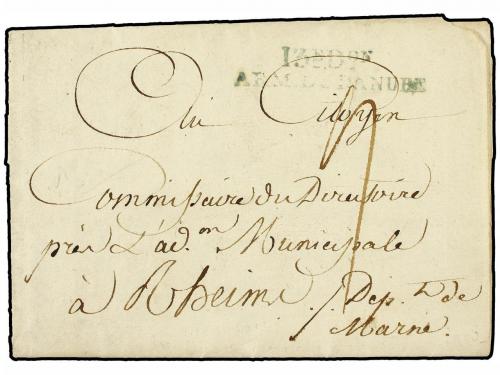 13e Don
ARM. DU DANUBE
Au Citoyen
Commissaire du Directoire
près L'ad.on Municipale
à Rheims
Dep.t de
Marne.